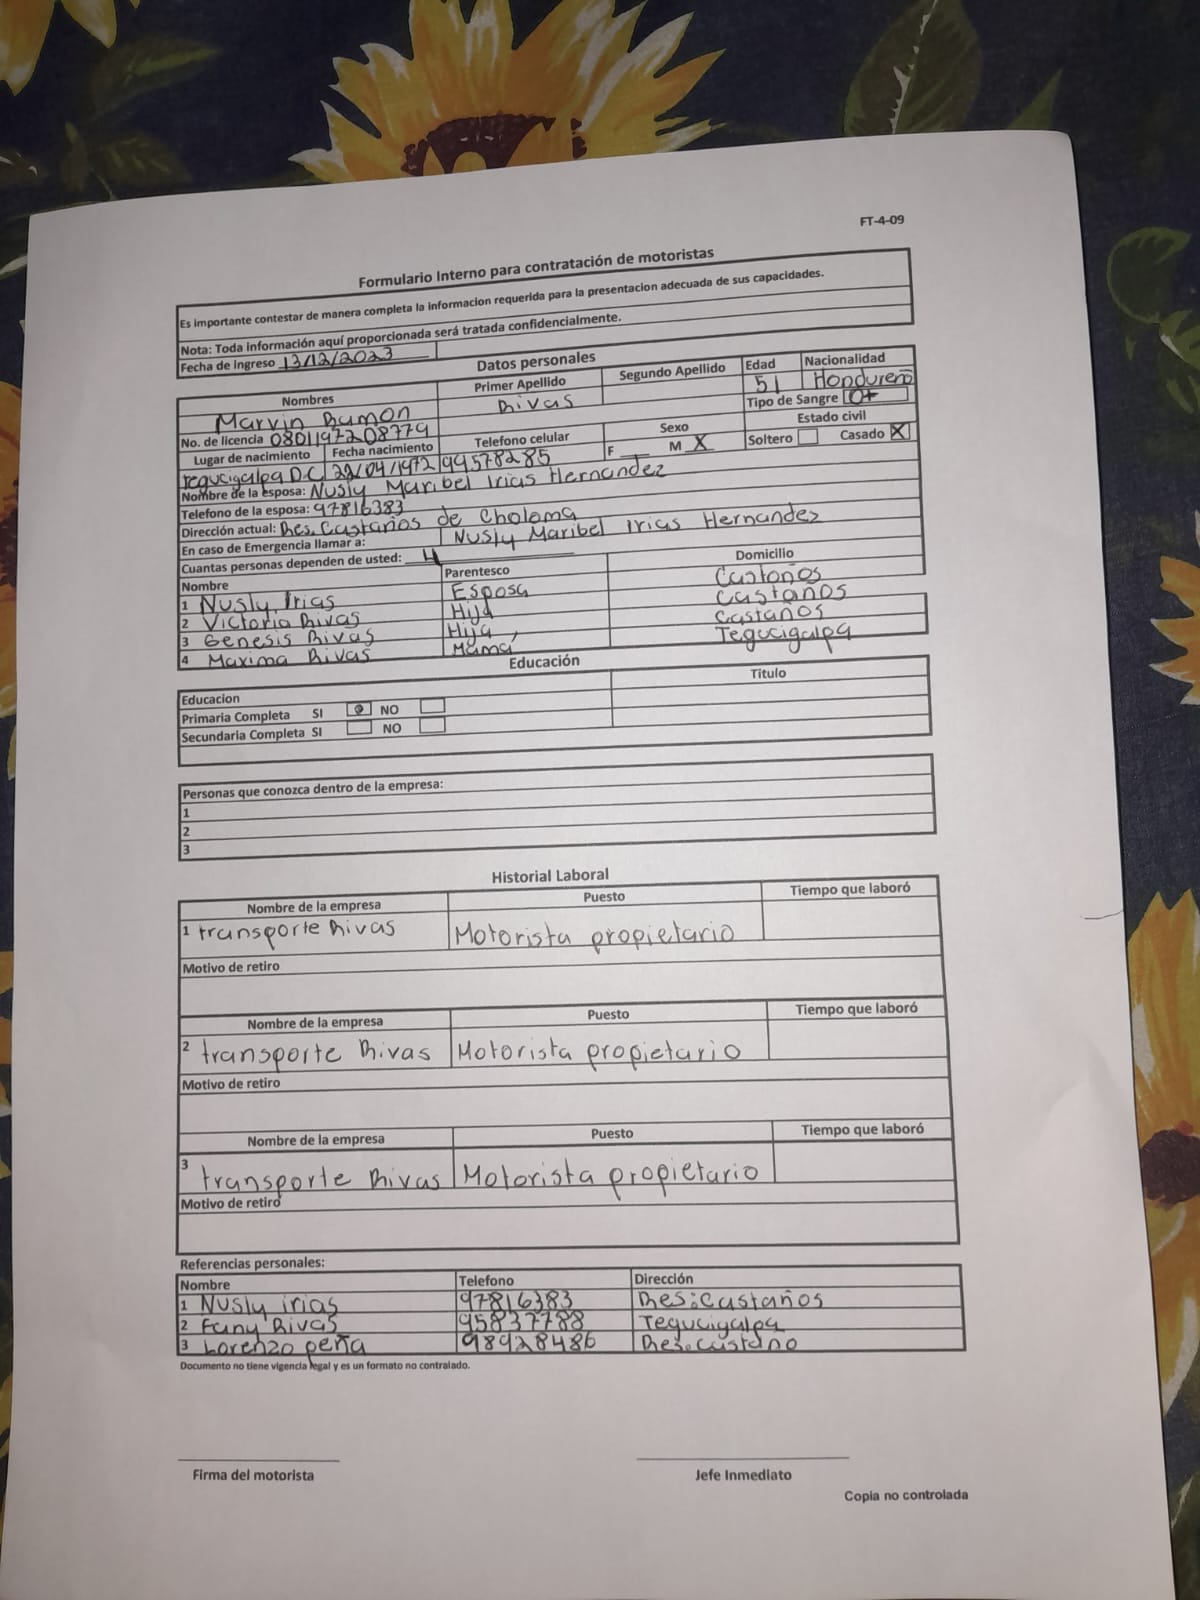 FT-4-09
Formulario Interno para contratación de motoristas
Es importante contestar de manera completa la informacion requerida para la presentacion adecuada de sus capacidades.
Nota: Toda información aquí proporcionada será tratada confidencialmente.
Fecha de ingreso 13/12/2023
Datos personales
Nombres Primer Apellido Segundo Apellido Edad Nacionalidad
Marvin Ramon Rivas 51 Hondureño
Tipo de Sangre O+
No. de licencia 0801197208779 Telefono celular Sexo Estado civil
Lugar de nacimiento Fecha nacimiento F M X Soltero Casado X
Tegucigalpa D.C 22/04/1972 99578285
Nombre de la esposa: Nusly Maribel Irias Hernandez
Telefono de la esposa: 97816383
Dirección actual: Res. Castaños de Choloma
En caso de Emergencia llamar a: Nusly Maribel Irias Hernandez
Cuantas personas dependen de usted: 4
Nombre Parentesco Domicilio
1 Nusly Irias Esposa Castoños
2 Victoria Rivas Hija Castaños
3 Genesis Rivas Hija Castaños
4 Maxima Rivas Mamá Tegucigalpa
Educación
Educacion Titulo
Primaria Completa SI NO
Secundaria Completa SI NO
Personas que conozca dentro de la empresa:
1
2
3
Historial Laboral
Nombre de la empresa Puesto Tiempo que laboró
1 transporte Rivas Motorista propietario
Motivo de retiro
Nombre de la empresa Puesto Tiempo que laboró
2 transporte Rivas Motorista propietario
Motivo de retiro
Nombre de la empresa Puesto Tiempo que laboró
3 transporte Rivas Motorista propietario
Motivo de retiro
Referencias personales:
Nombre Telefono Dirección
1 Nusly irias 97816383 Res: Castaños
2 Fany Rivas 95837788 Tegucigalpa
3 Lorenzo peña 98928486 Res. Castaño
Documento no tiene vigencia legal y es un formato no contralado.
Firma del motorista Jefe Inmediato
Copia no controlada